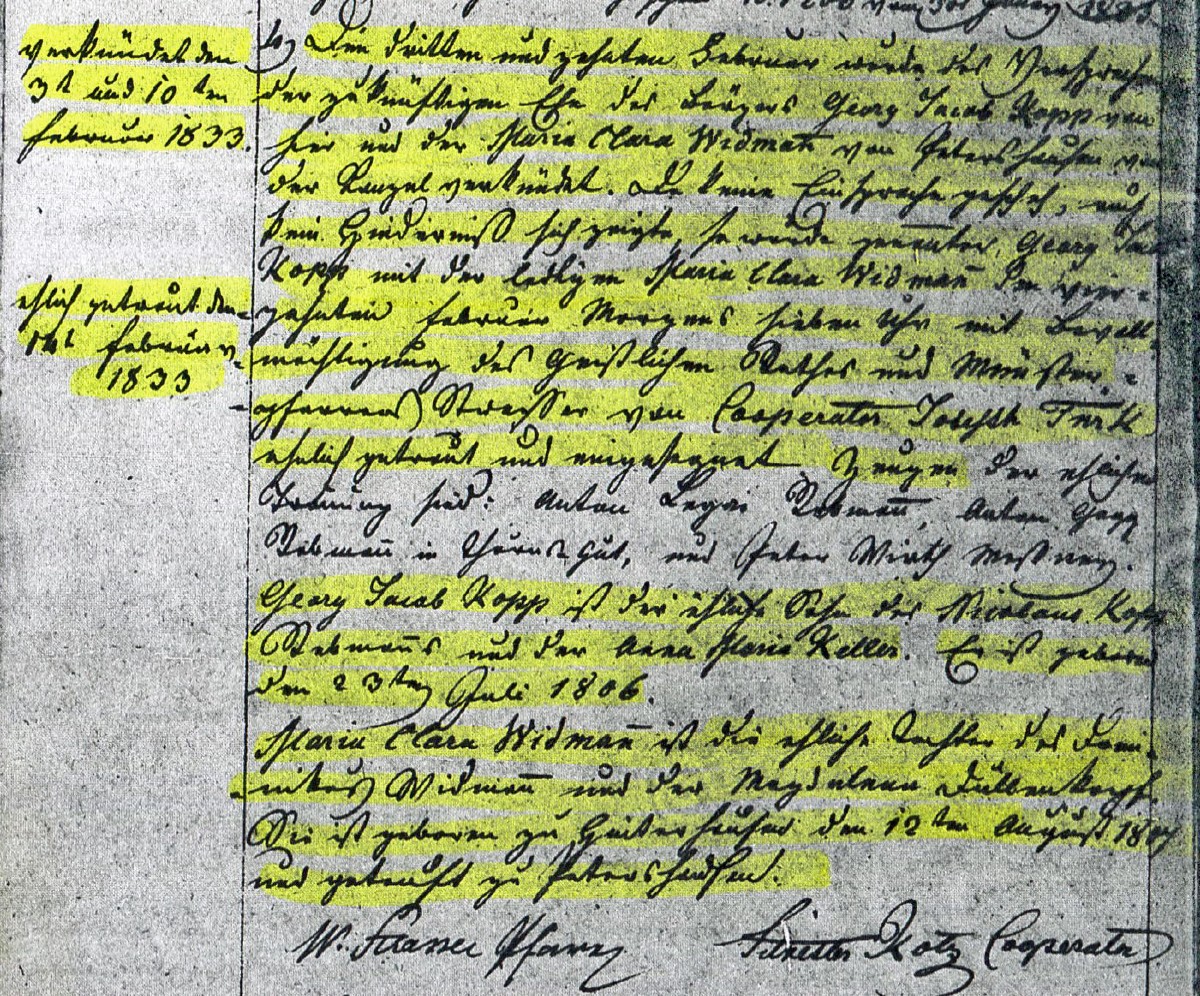 verkündet den
3t und 10ten
Februar 1833.
ehlich getraut den
14t Februar
1833
Den dritten und zehnten Februar wurde das Versprechen
der zukünftigen Ehe des Bürgers Georg Jacob Kopp von
hier und der Maria Clara Widmañ von Petershausen von
der Kanzel verkündet. Da keine Einsprache geschah, auch
kein Hinderniß sich zeigte, so wurde genannter Georg Jac
Kopp mit der ledigen Maria Clara Widmañ den vier-
zehnten Februar Morgens sieben Uhr mit Bevoll-
mächtigung des Geistlichen Rathes und Münster-
pfarrers Strasser von Cooperator Joseph
ehelich getraut und eingesegnet. Zeugen der ehlichen
Trauung sind: Anton Rebmañ, Anton
Rebmañ in Gut, und Peter Wirth Meßner.
Georg Jacob Kopp ist der ehliche Sohn des Nicolaus Kopp
Rebmañs und der Anna Maria Keller. Er ist geboren
den 23ten Juli 1806.
Maria Clara Widmañ ist die ehliche Tochter des Domi-
nikus Widmañ und der Magdalena
Sie ist geboren zu den 12ten August
und getauft zu Petershausen.
W. Strasser Pfarrer Cooperator